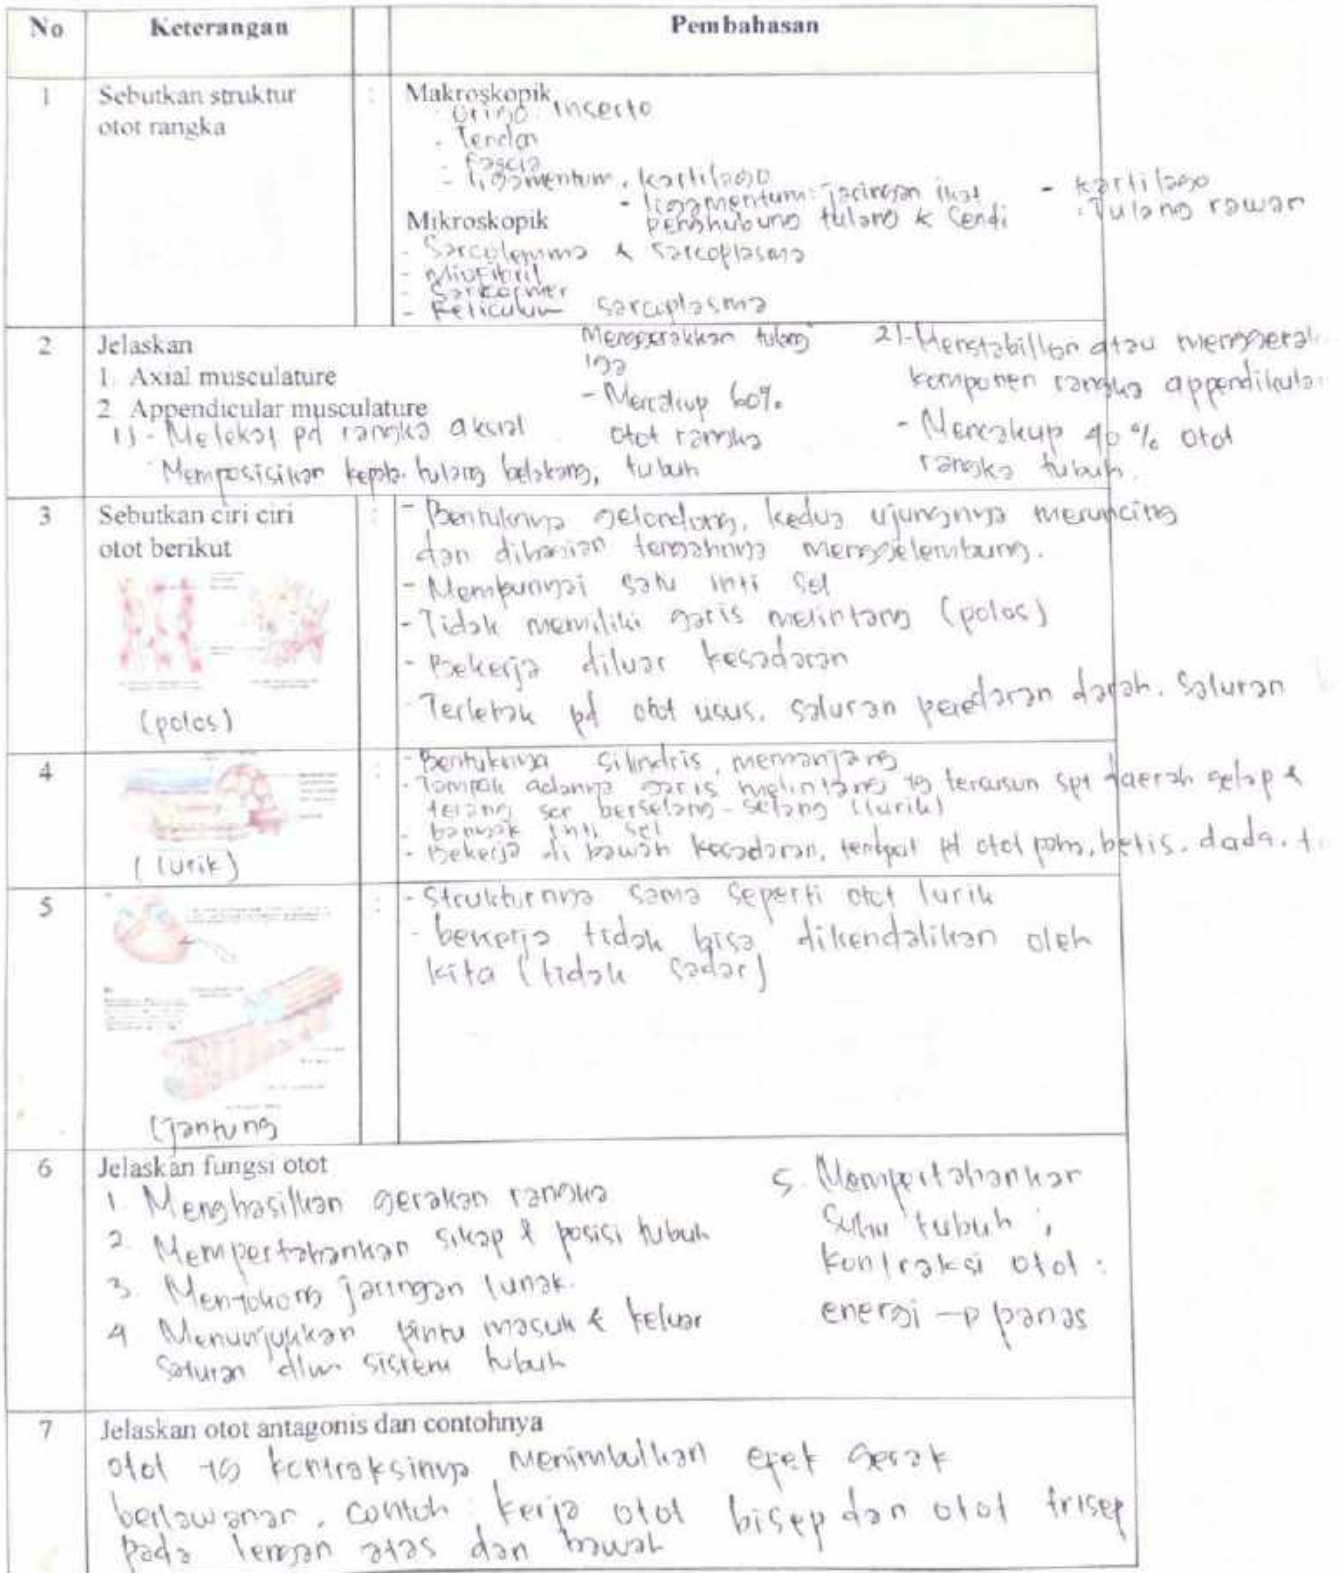 No Keterangan Pembahasan
1 Sebutkan struktur otot rangka :
Makroskopik
- Origo. Inserto
- Tendon
- Fascia
- ligamentum, kartilago
- ligamentum: jaringan ikat
penghubung tulang & Sendi
- kartilago
: Tulang rawan
Mikroskopik
- Sarcolemma & Sarcoplasma
- Miofibril
- Sarkomer
- Reticulum sarcoplasma
2 Jelaskan
1. Axial musculature
2. Appendicular musculature
1) - Melekat pd rangka aksial
Memposisikan kepala. tulang belakang, tubuh
Menggerakkan tulang
iga
- Mencakup 60%
otot rangka
2) - Menstabilkan atau menggerak
komponen rangka appendikular
- Mencakup 40% otot
rangka tubuh.
3 Sebutkan ciri ciri
otot berikut
(polos)
:
- Bentuknya gelondong, kedua ujungnya meruncing
dan dibagian tengahnya menggelembung.
- Mempunyai satu inti sel
- Tidak memiliki garis melintang (polos)
- Bekerja diluar kesadaran
- Terletak pd otot usus. saluran peredaran darah. Saluran
4
(lurik)
:
- Bentuknya silindris, memanjang
- Tampak adanya garis melintang yg tersusun spt daerah gelap &
terang scr berselang-seling (lurik)
- banyak inti sel
- Bekerja di bawah kesadaran, terdpat pd otot paha, betis. dada. t
5
(jantung
:
- Strukturnya sama seperti otot lurik
- bekerja tidak bisa dikendalikan oleh
kita (tidak sadar)
6 Jelaskan fungsi otot
1. Menghasilkan gerakan rangka
2. Mempertahankan sikap & posisi tubuh
3. Menyokong jaringan lunak.
4 Menunjukkan pintu masuk & keluar
saluran dlm sistem tubuh
5. Mempertahankan
Suhu tubuh ;
kontraksi otot :
energi → panas
7 Jelaskan otot antagonis dan contohnya
otot yg kontraksinya menimbulkan efek gerak
berlawanan, contoh : kerja otot bisep dan otot trisep
pada lengan atas dan bawah